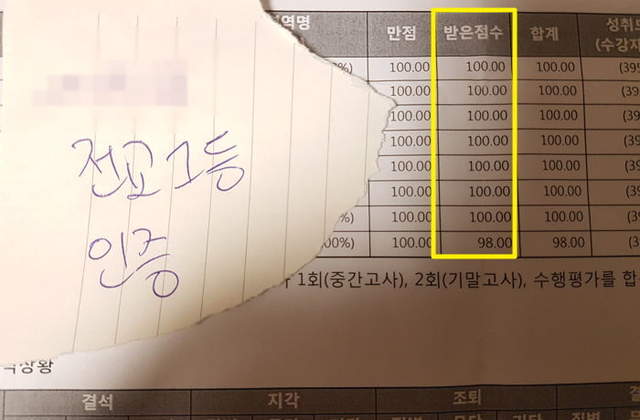 역명 만점 받은점수 합계 성취도
(수강자
%) 100.00 100.00 100.00 (395
100.00 100.00 100.00 (39
100.00 100.00 100.00 (39
100.00 100.00 100.00 (39
100.00 100.00 100.00 (39
100.00 100.00 100.00 (39
%) 100.00 100.00 100.00 (3
00%) 100.00 98.00 98.00 (3
전교 1등
인증
1회(중간고사), 2회(기말고사), 수행평가를 합
상황
결석 지각 조퇴